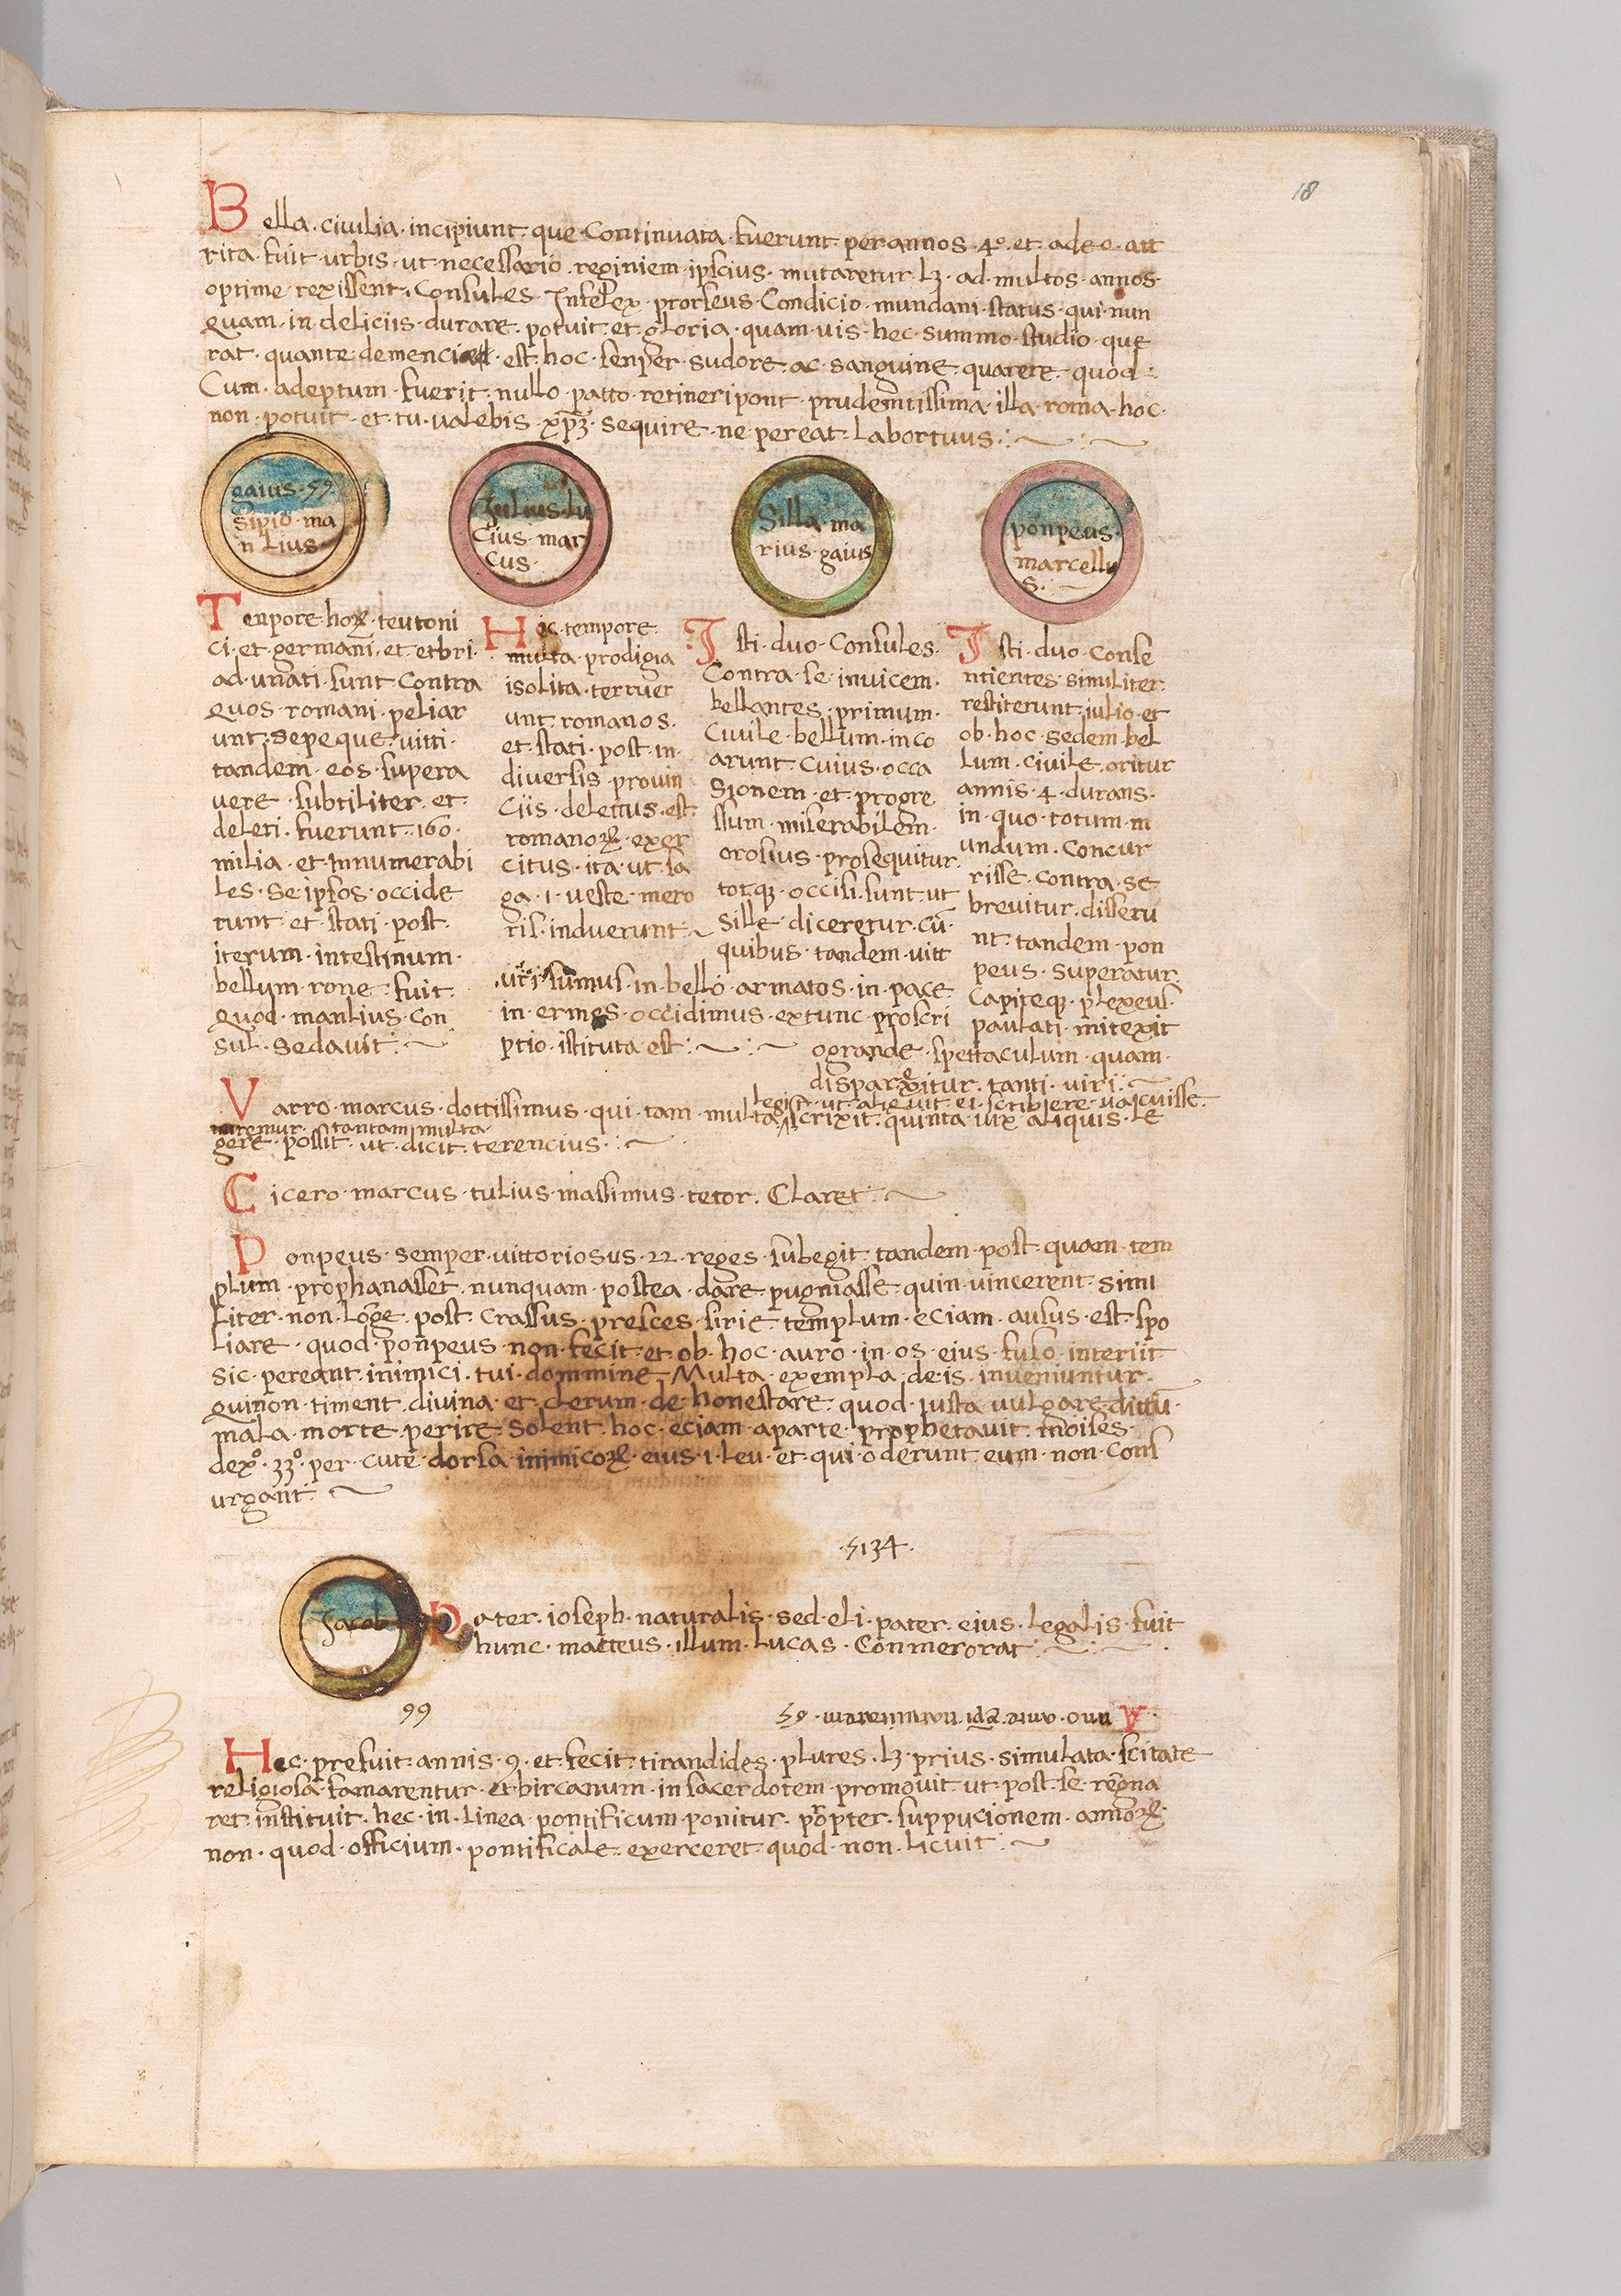 18
Bella · ciuilia · incipiunt · que · Continuata · fuerunt · per annos · 4º · et · adeo · att
rita · fuit · urbis · ut · necessario · reginiem · ipscius · mutaretur · lʒ · ad · multos · annos ·
optime · rexissent · Consules · Infelex · prorseus · Condicio · mundani · status · qui · nun
quam · in · deliciis · durare · potuit · et · gloria · quam · uis · hec · summo · studio · que
rat · quante · demencia · est · hoc · senper · sudore · ac · sanguine · quarere · quod ·
Cum · adeptum · fuerit · nullo · patto · retineri pont · prudentissima · illa · roma · hoc ·
non · potuit · et · tu · ualebis · xp̄ʒ · sequire · ne · pereat · labor tuus
gaius · 59 ·
sipio · ma
nlius
Iulius · lu
Cius · mar
Cus ·
Silla · ma
rius · gaius
ponpeus ·
marcellu
s ·
Tenpore · hoꝝ · teutoni
ci · et · germani · et · etbri ·
ad · unati · sunt · Contra
quos · romani · peliar
unt · sepeque · uitti ·
tandem · eos · supera
vere · subtiliter · et ·
deleti · fuerunt · 160 ·
milia · et · innumerabi
les · se ipsos · occide
runt · et · stati · post ·
iterum · intestinum ·
bellum · rone · fuit ·
quod · manlius · con
sul · sedauit
Hec · tempore ·
multa · prodigia
isolita · terruer
unt · romanos ·
et · stati · post · in ·
diuersis · prouin
Ciis · delettus · est ·
romanoꝝ · exer
citus · ita · ut · sa
ga · i · ueste · mero
ris · induerunt
Isti · duo · Consules ·
Contra · se · inuicem ·
bellantes · primum ·
Ciuile · bellum · inco
arunt · Cuius · occa
Sionem · et · progre
ssum · miserabilem ·
orosius · prosequitur ·
totqꝫ · occisi · sunt · ut
Sille · diceretur · cū ·
quibus · tandem · uitt
uri · sumus · in · bello · armatos · in · pace ·
in · ermes · occidimus · extunc · proscri
ptio · istituta est
Isti · duo · conse
ntientes · similiter ·
restiterunt · iulio · et
ob · hoc · sedem · bel
lum · ciuile · oritur
annis · 4 · durans ·
in · quo · totum · m
undum · Concur
risse · contra · se ·
breuitur · disseru
nt · tandem · pon
peus · superatur ·
Capiteqꝫ · plexeus ·
paulati · mitexit
o grande · spettaculum · quam ·
disparxitur · tanti · uiri
Varro · marcus · dottissimus · qui · tam · multa · scrixit · quinta · uix · aliquis · le
legist · ut · aliquit · ei · scribere · uacuisse
miremur · tantam · multa ·
gere · possit · ut · dicit · terencius
Cicero · marcus · tulius · massimus · retor · Claret
Ponpeus · semper · uittoriosus · 22 · reges · subegit · tandem · post · quam · tem
plum · prophanasset · nunquam · postea · dare · pugniasse · quin · uincerent · simi
liter · non · longe · post · crassus · presces · sirie · templum · eciam · ausus · est · spo
liare · quod · ponpeus · non · fecit · et · ob · hoc · auro · in · os · eius · fuso · interiit
sic · pereant · inimici · tui · dommine · Multa · exempla · de · is · inueniuntur ·
qui non · timent · diuina · et · clerum · de · honestare · quod · iusta · uulgare · dittū ·
mala · morte · perire · solent · hoc · eciam · aparte · prophetauit · moises ·
dexº · 33º · per · cute · dorsa · inimicoꝝ · eius · i · leu · et · qui · oderunt · eum · non · cons
urgant
· 5134 ·
Jacob
Pater · ioseph · naturalis · sed · eli · pater · eius · legalis · fuit
hunc · matteus · illum · lucas · Conmerorat
99
Hec · prefuit · annis · 9 · et · fecit · tirandides · plures · lʒ · prius · simulata · scitate
religiosa · famarentur · et hircanum · in sacerdotem · promouit · ut · post · se · regna
ret · instituit · hec · in · linea · pontificum · ponitur · propter · suppucionem · annoꝝ ·
non · quod · officium · pontificale · exerceret · quod · non · licuit